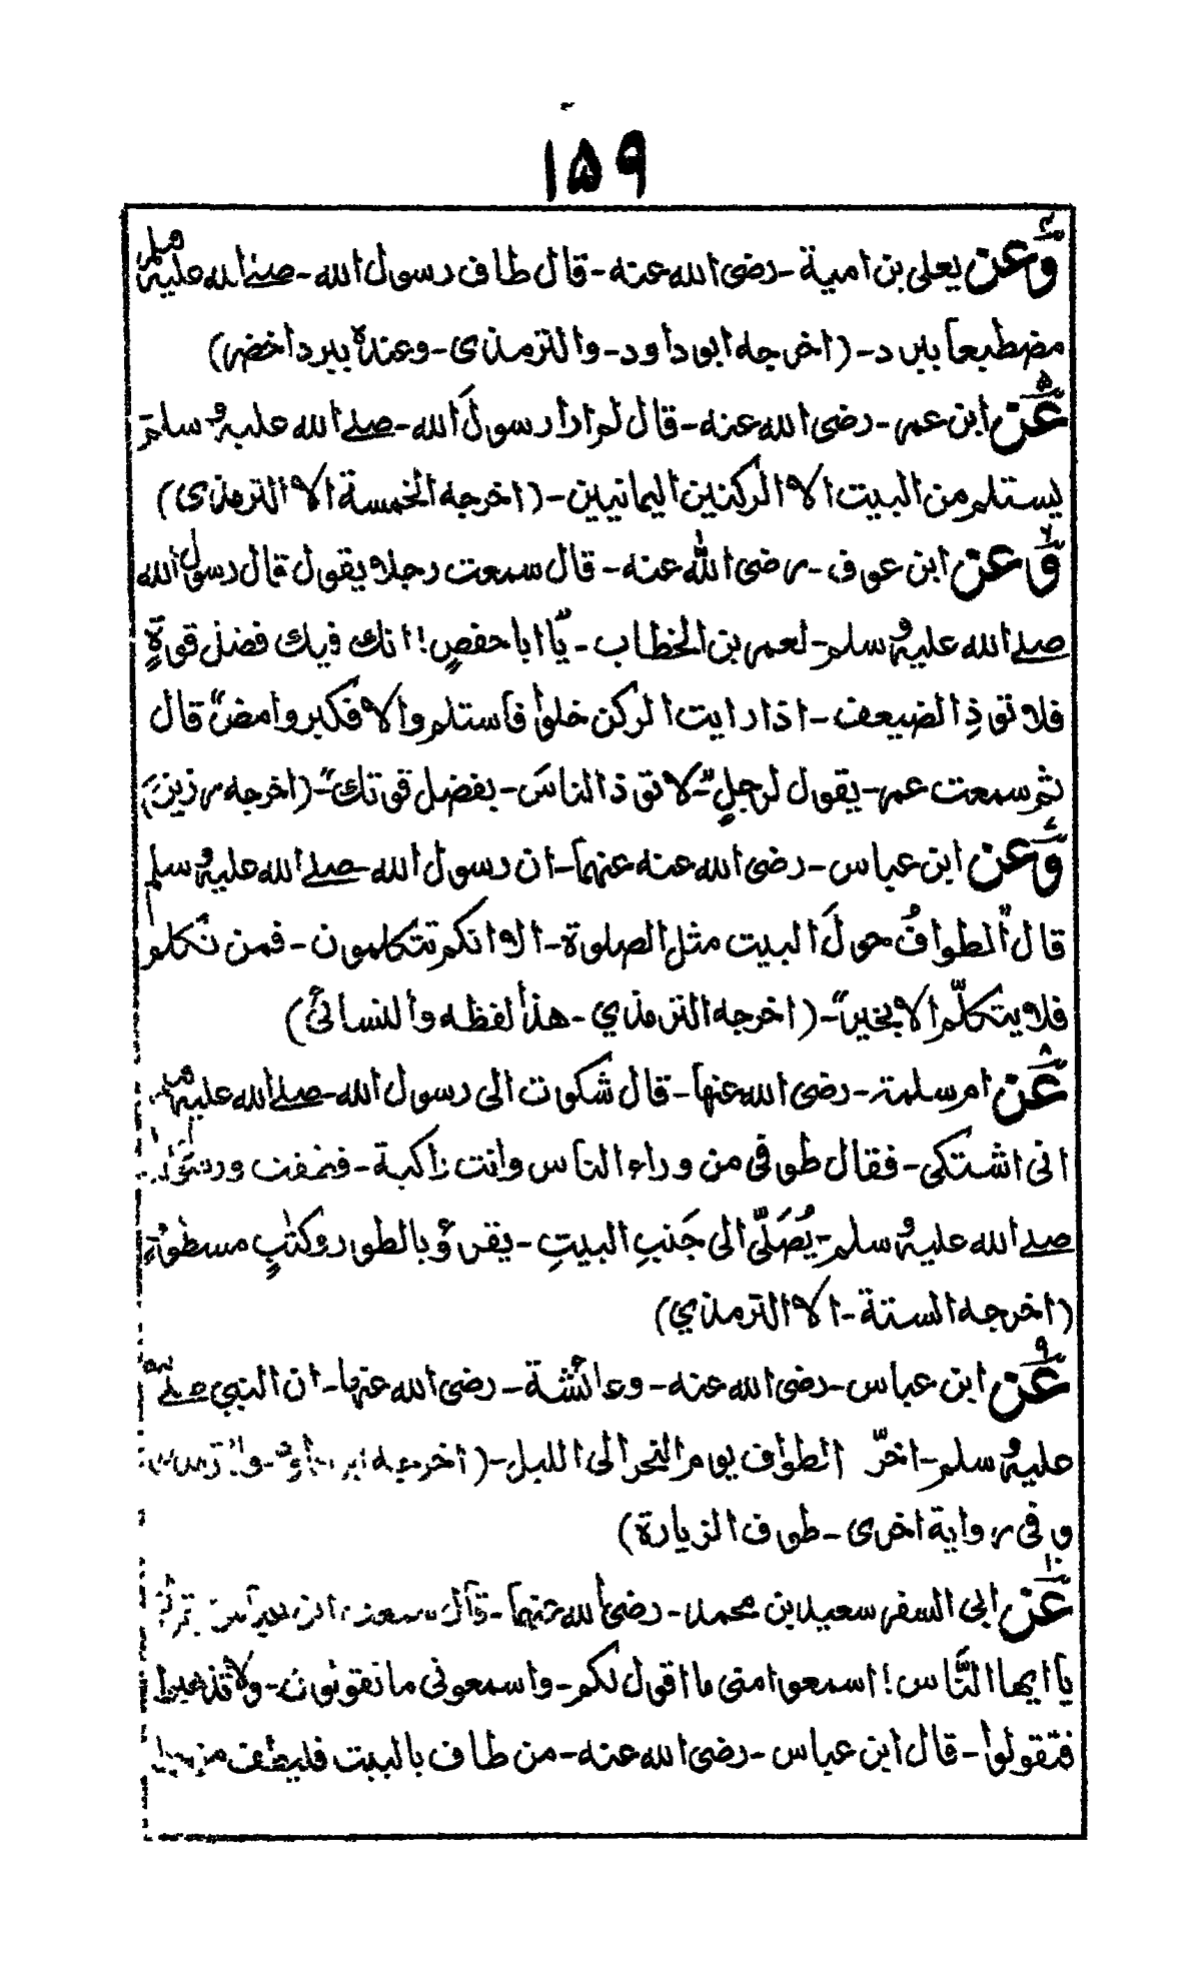 ۱۵۹
۴ وَعَن يعلى بن امية - رضى الله عنه - قال طاف رسول الله - صلے الله عليه وسلم
مضطبعا ببرد - (اخرجه ابو داود - والترمذى - وعنده ببرد اخضر)
۵ عَن ابن عمر - رضى الله عنه - قال لم ار رسولَ الله - صلے الله عليه وسلم
يستلم من البيت الا الركنين اليمانيين - (اخرجه الخمسة الا الترمذى)
۶ وَعن ابن عوف - رضى الله عنه - قال سمعت رجلا يقول قال رسول الله
صلے الله عليه وسلم - لعمر بن الخطاب - يٓا ابا حفصٍ! انك فيك فضل قوةٍ
فلا تؤذِ الضعيف - اذا رايت الركن خلوا فاستلم والا فكبر وامض" قال
ثم سمعت عمر - يقول لرجلٍ "لا تؤذ الناسَ - بفضل قوتك" - (اخرجه رزين)
۷ وَعن ابن عباس - رضى الله عنه عنهما - ان رسول الله - صلے الله عليه وسلم
قال "الطوافُ حولَ البيت مثل الصلوة - الا انكم تتكلمون - فمن تكلم
فلا يتكلّم الا بخير" - (اخرجه الترمذي - هذا لفظه والنسائى)
۸ عَن ام سلمة - رضى الله عنها - قال شكوت الى رسول الله - صلے الله عليه وسلم
انى اشتكى - فقال طوفى من وراء الناس وانت راكبة - فطفت ورسول الله
صلے الله عليه وسلم - يُصَلّى الى جَنبِ البيتِ - يقرؤ بالطور وكتٰبٍ مسطورٍ
(اخرجه الستة - الا الترمذي)
۹ عَن ابن عباس - رضى الله عنه - وعائشة - رضى الله عنها - ان النبي صلے الله
عليه وسلم - اخّر الطواف يوم النحر الى الليل - (اخرجه ابو داود - والترمذى
و فى رواية اخرى - طوف الزيارة)
۱۰ عَن ابى السفر سعيد بن محمد - رضى الله عنهما - قال سمعت ابن عباس يقول
يا ايها النَّاس! اسمعوا منى ما اقول لكم - واسمعونى ما تقولون - ولا تذهبوا
فتقولوا - قال ابن عباس - رضى الله عنه - من طاف بالبيت فليطف من